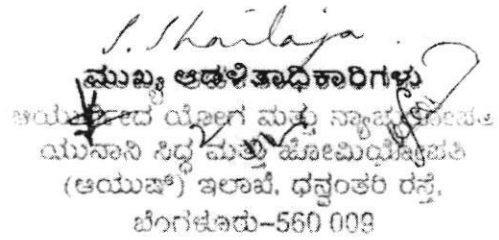 S. Shailaja
ಮುಖ್ಯ ಆಡಳಿತಾಧಿಕಾರಿಗಳು
ಆಯುರ್ವೇದ ಯೋಗ ಮತ್ತು
ಯುನಾನಿ ಸಿದ್ಧ ಮತ್ತು ಹೋಮಿಯೋಪತಿ
(ಆಯುಷ್) ಇಲಾಖೆ, ಧನ್ವಂತರಿ ರಸ್ತೆ,
ಬೆಂಗಳೂರು-560 009